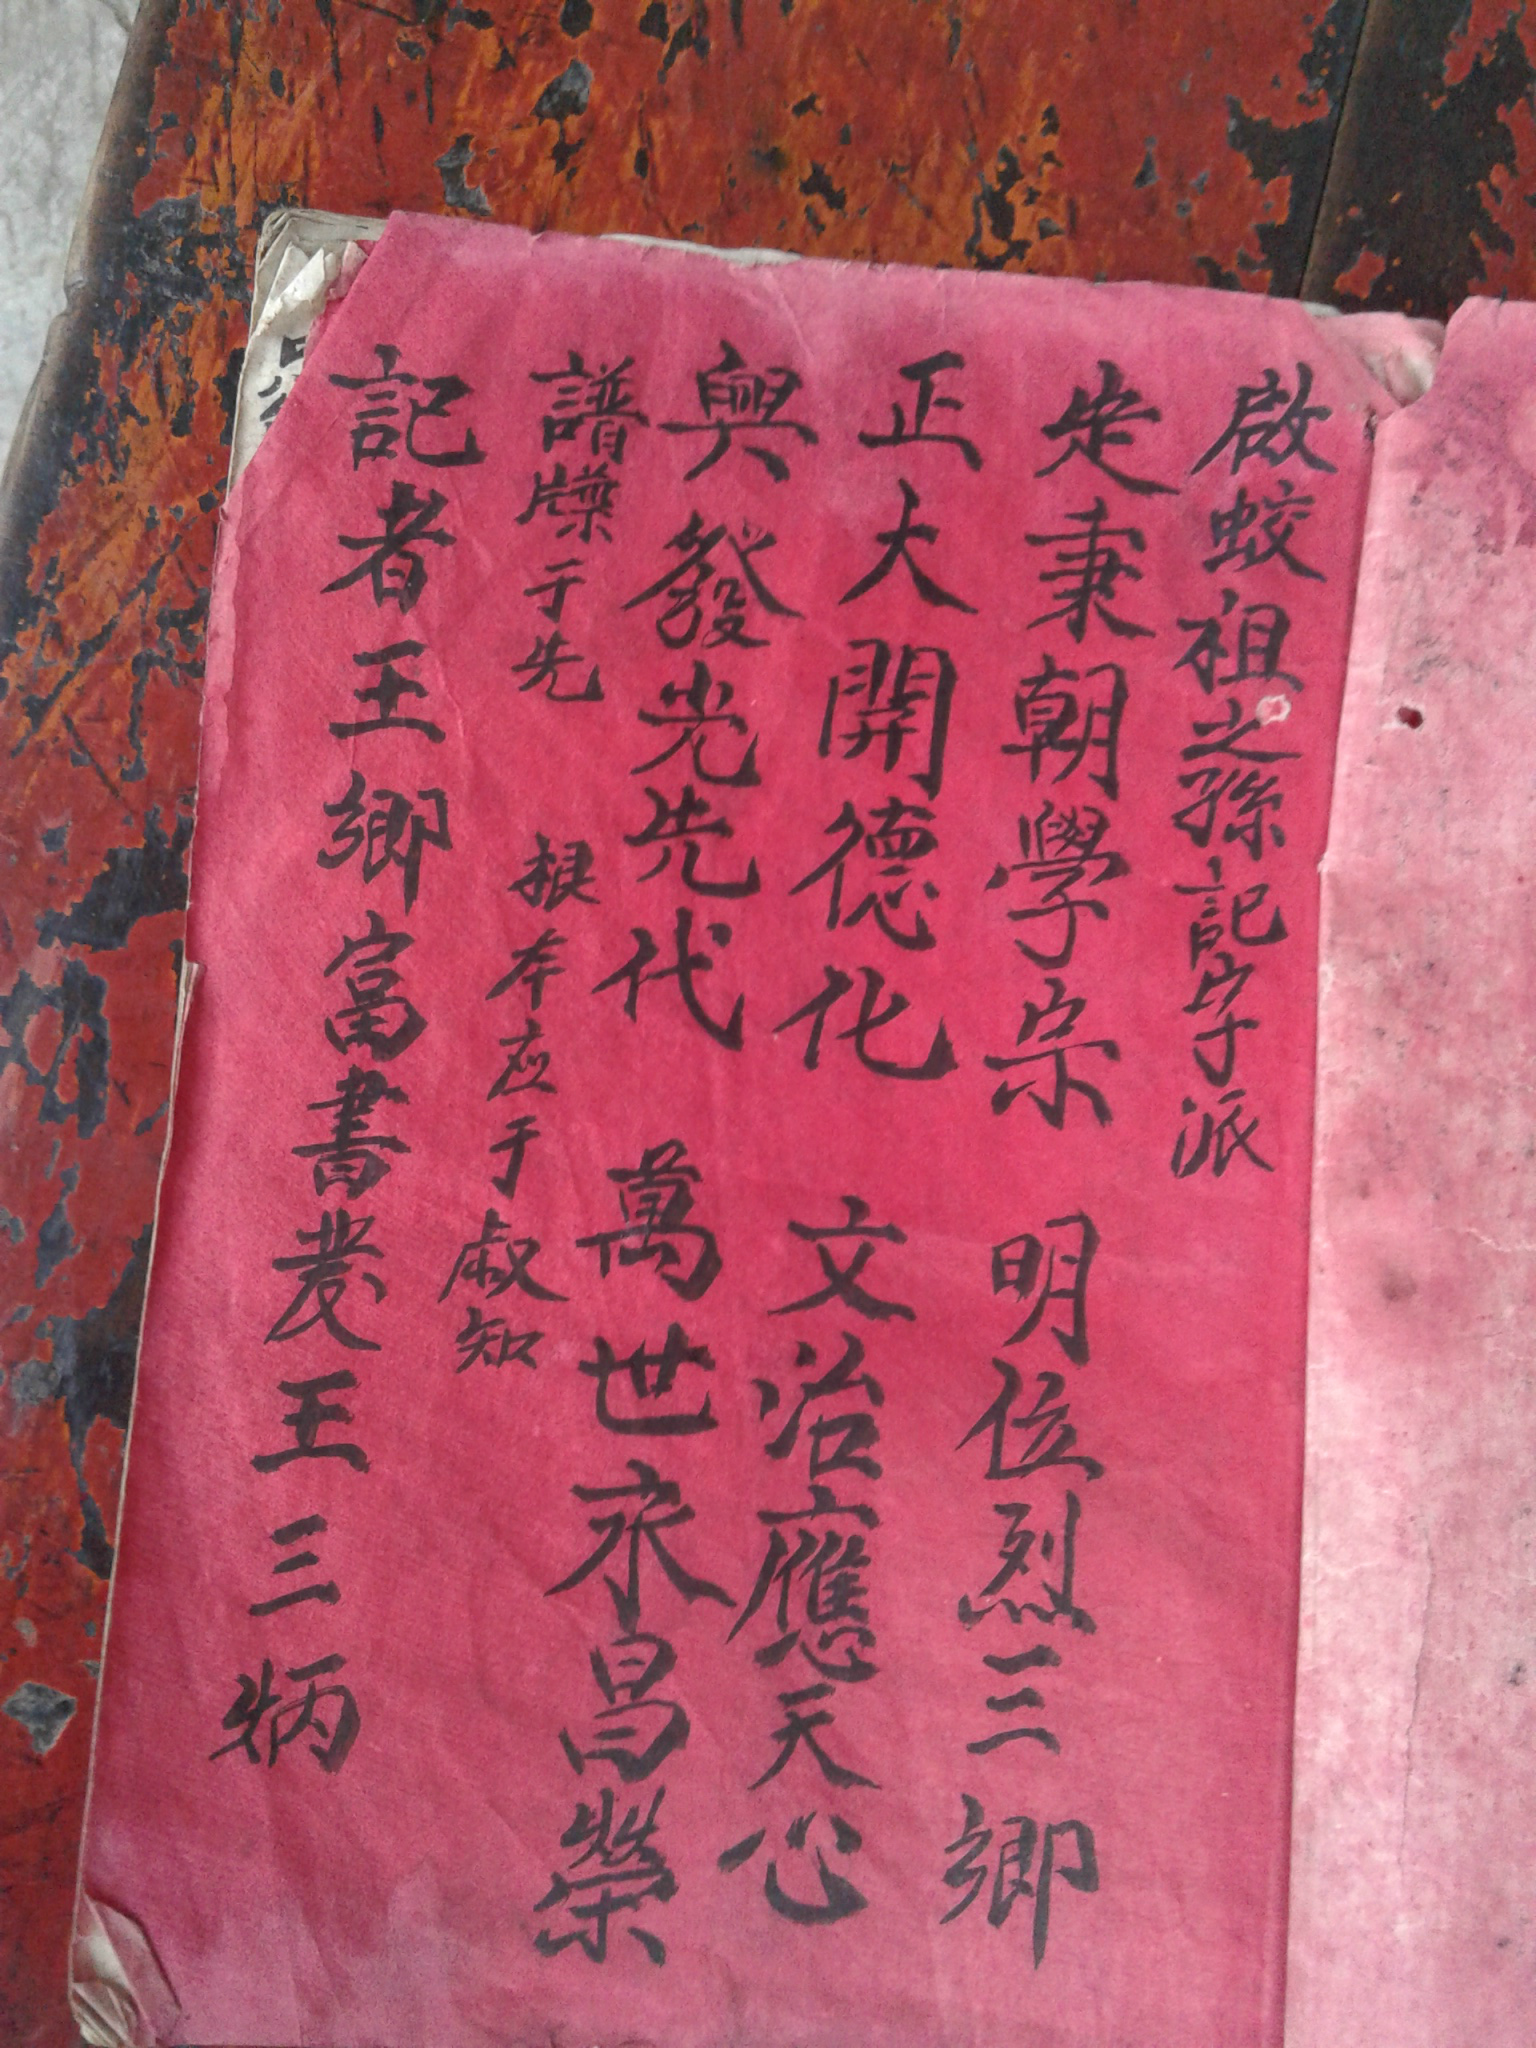 啟蛟祖之孫記字派
秉朝學宗 明位烈三鄉
正大開德化 文治應天心
興發光先代 萬世永昌榮
譜牒于先 根本应于叔知
記者王鄉富書 王三炳